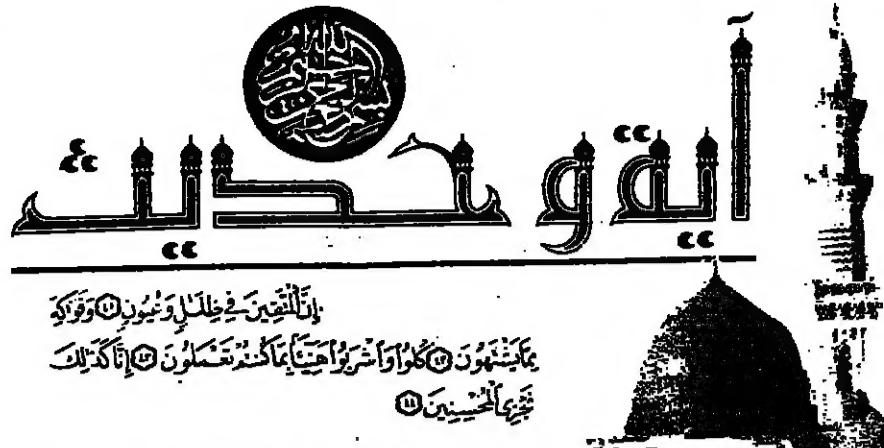 بسم الله الرحمن الرحيم
آية وحديث
إِنَّ ٱلْمُتَّقِينَ فِي ظِلَٰلٍ وَعُيُونٍ ٤١ وَفَوَٰكِهَ
مِمَّا يَشْتَهُونَ ٤٢ كُلُوا۟ وَٱشْرَبُوا۟ هَنِيٓـًٔۢا بِمَا كُنتُمْ تَعْمَلُونَ ٤٣ إِنَّا كَذَٰلِكَ
نَجْزِي ٱلْمُحْسِنِينَ ٤٤